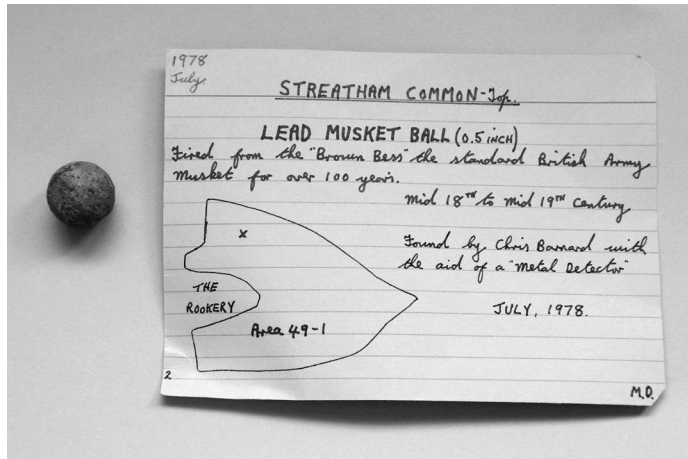 1978
July.
STREATHAM COMMON-Top.
LEAD MUSKET BALL (0.5 INCH)
Fired from the "Brown Bess" the standard British Army
Musket for over 100 years.
Mid 18TH to mid 19TH Century
Found by Chris Barnard with
the aid of a "Metal Detector"
JULY, 1978.
x
THE
ROOKERY
Area 49-1
2
M.D.